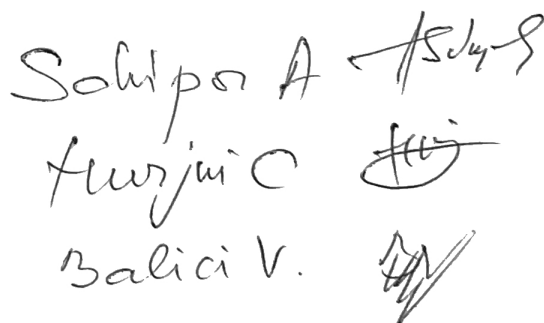 Schipor A
Hurjui C
Balici V.